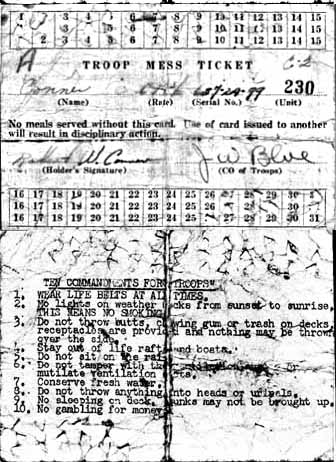 1 3 4 5 6 7 8 9 10 11 12 13 14 15
3 5 6 7 8 9 10 11 12 13 14 15
2 3 4 5 6 7 8 9 10 11 12 13 14 15
A TROOP MESS TICKET C-2
Conner 230
(Name) (Rate) (Serial No.) (Unit)
No meals served without this card. Use of card issued to another
will result in disciplinary action.
J W Blue
(Holder's Signature) (CO of Troops)
16 17 18 19 20 21 22 23 24 25 26 27 28 29 30
16 17 18 19 20 21 22 23 24 25 26 27 28 29 30 31
16 17 18 19 20 21 22 23 24 25 27 28 29 30 31
"TEN COMMANDMENTS FOR TROOPS"
1. WEAR LIFE BELTS AT ALL TIMES.
2. No lights on weather decks from sunset to sunrise.
THIS MEANS NO SMOKING
3. Do not throw butts, chewing gum or trash on decks.
receptacles are provided and nothing may be thrown
over the side.
4. Stay out of life rafts and boats.
5. Do not sit on the rails
6. Do not tamper with the
mutilate ventilation
7. Conserve fresh water.
8. Do not throw anything into heads or urinals.
9. No sleeping on deck. Bunks may not be brought up.
10. No gambling for money